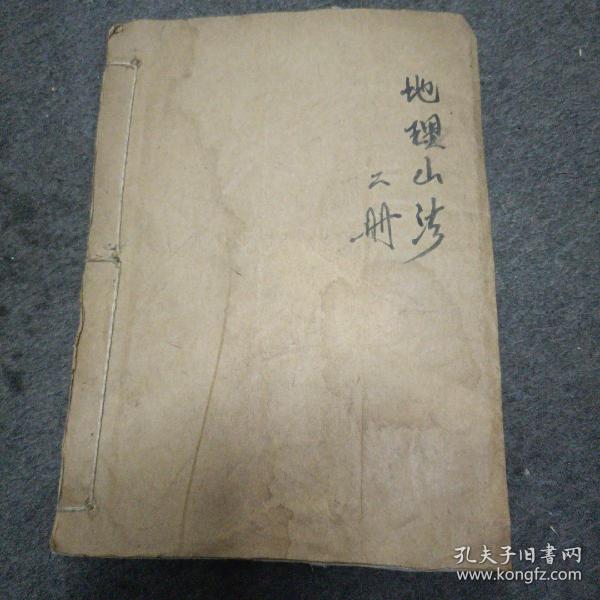 地理山法
二册
孔夫子旧書网
www.kongfz.com